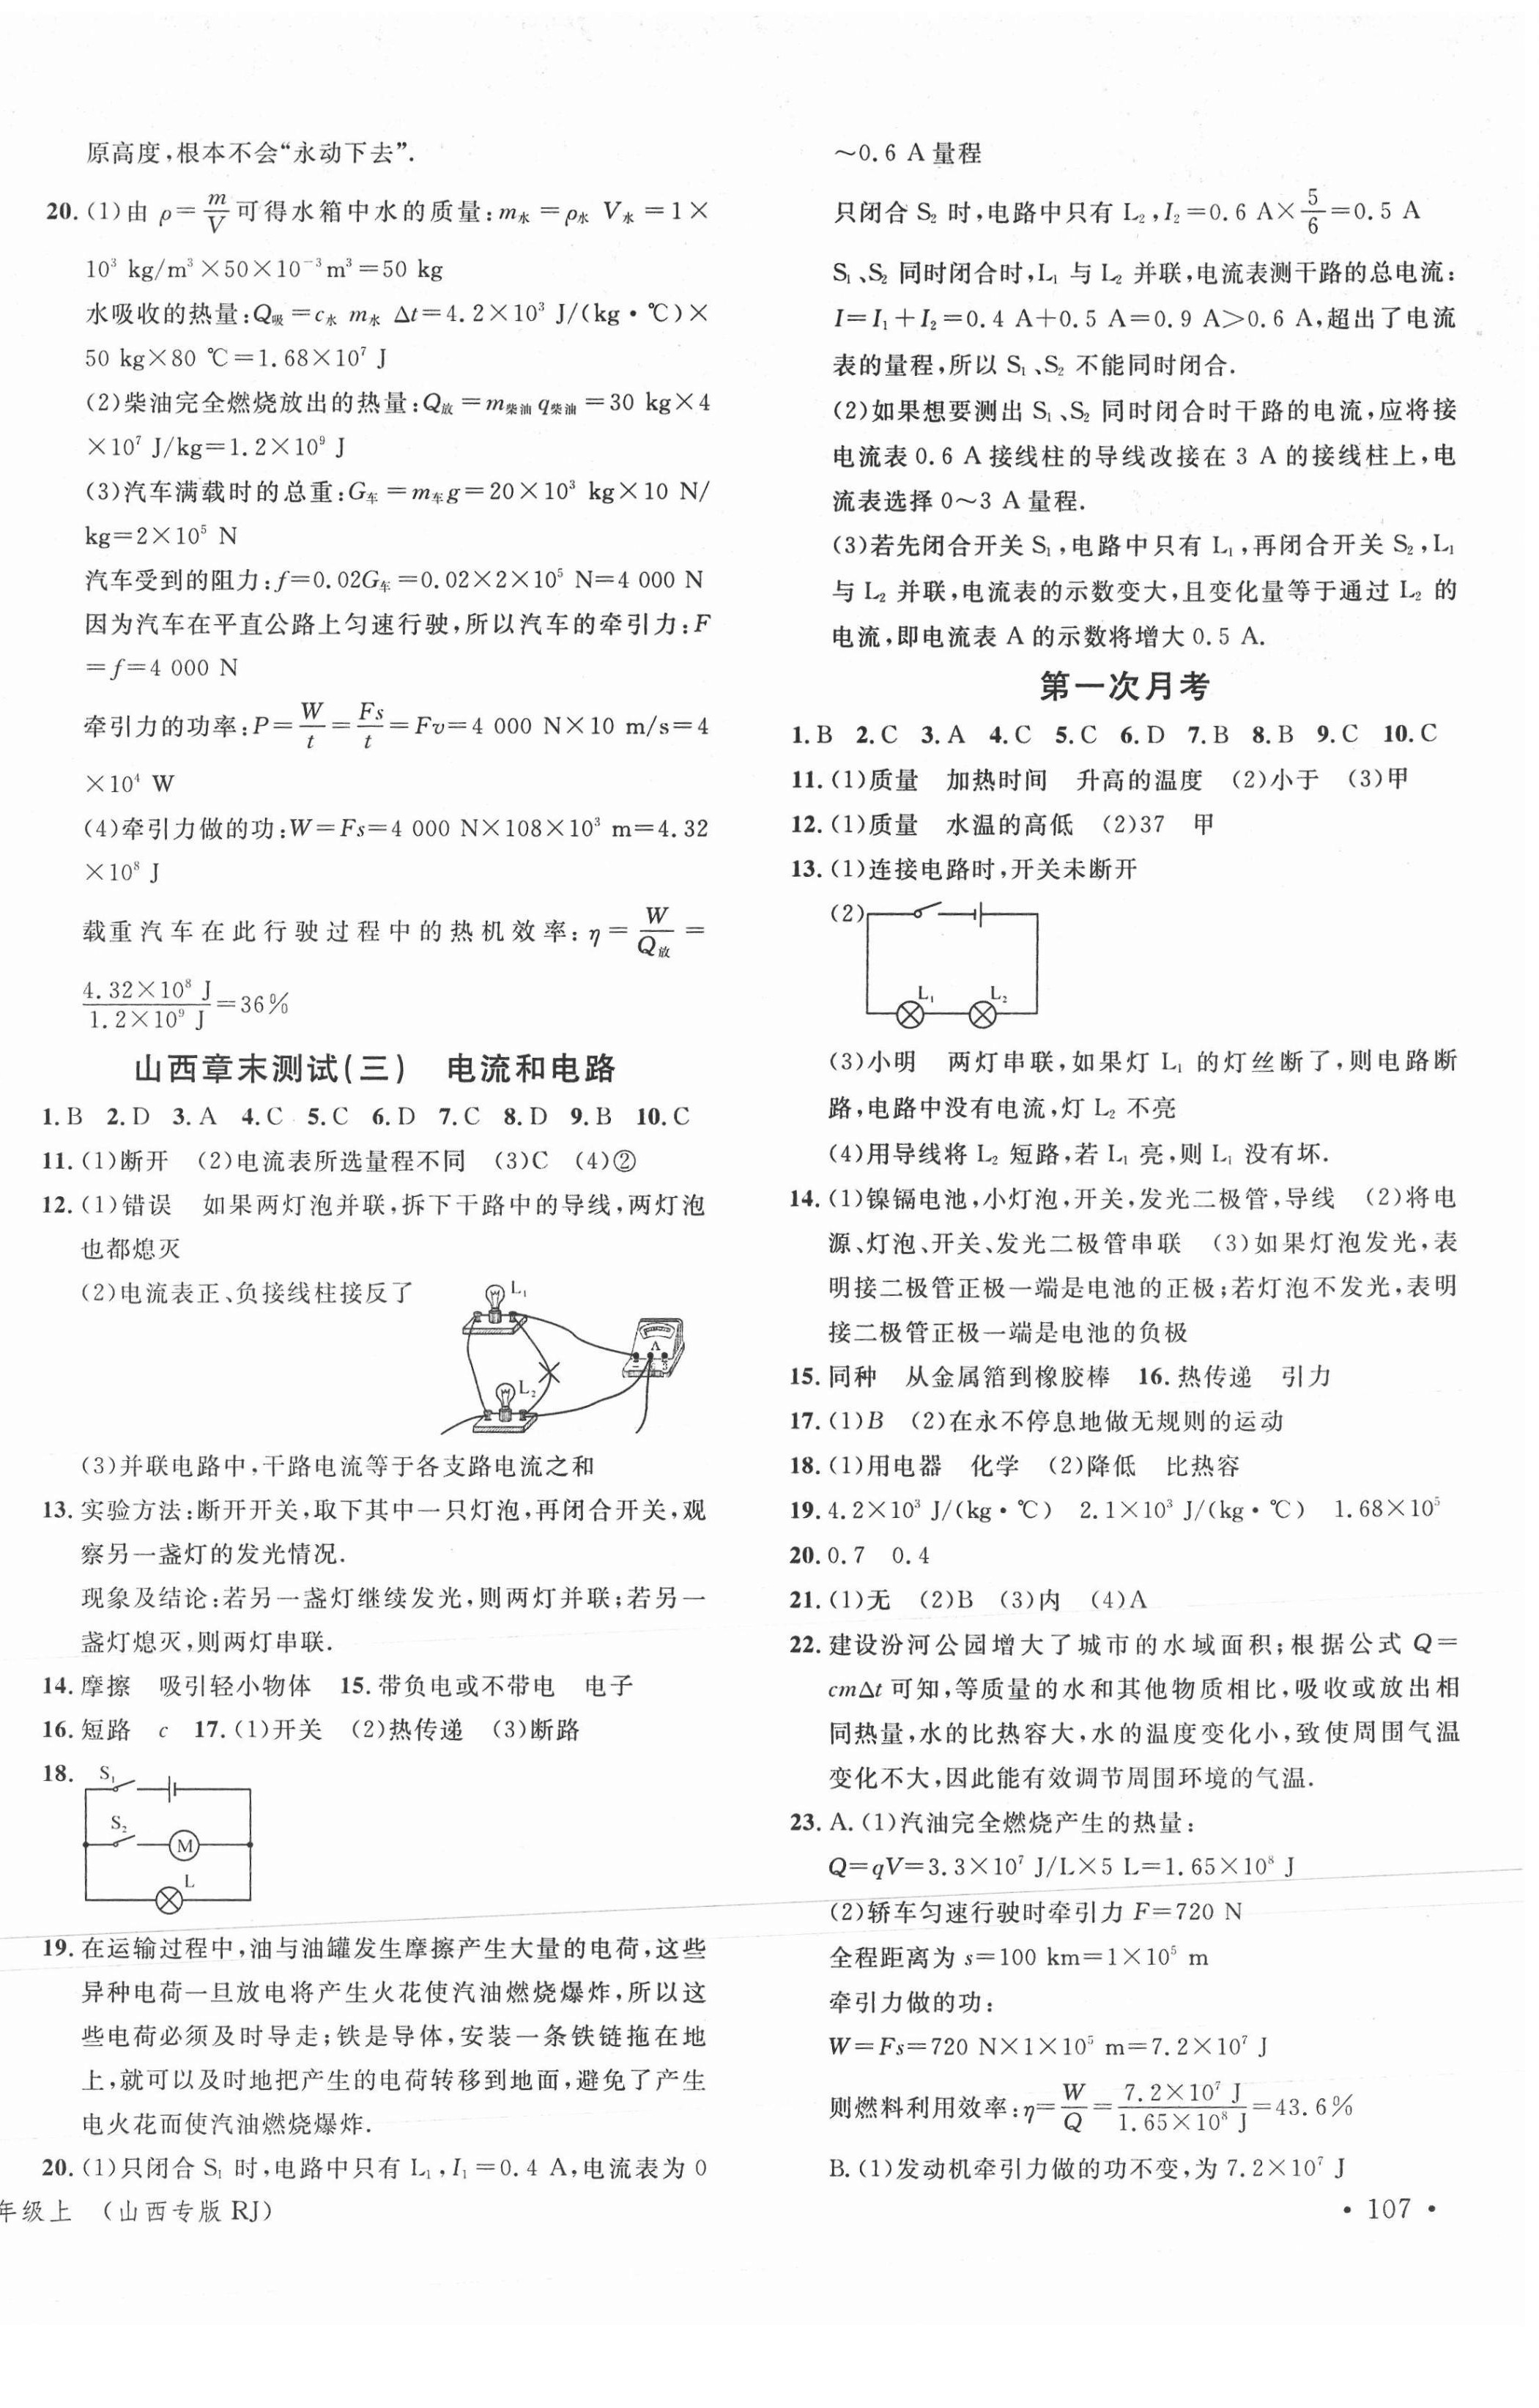 原高度,根本不会“永动下去”.
20.(1)由 ρ=m/V可得水箱中水的质量:m水=ρ水 V水=1×
10³ kg/m³×50×10⁻³m³=50 kg
水吸收的热量:Q吸=c水 m水 Δt=4.2×10³ J/(kg·℃)×
50 kg×80 ℃=1.68×10⁷ J
(2)柴油完全燃烧放出的热量:Q放=m柴油q柴油=30 kg×4
×10⁷ J/kg=1.2×10⁹ J
(3)汽车满载时的总重:G车=m车g=20×10³ kg×10 N/
kg=2×10⁵ N
汽车受到的阻力:f=0.02G车=0.02×2×10⁵ N=4 000 N
因为汽车在平直公路上匀速行驶,所以汽车的牵引力:F
=f=4 000 N
牵引力的功率:P=W/t=Fs/t=Fv=4 000 N×10 m/s=4
×10⁴ W
(4)牵引力做的功:W=Fs=4 000 N×108×10³ m=4.32
×10⁸ J
载重汽车在此行驶过程中的热机效率:η=W/Q放=
4.32×10⁸ J/1.2×10⁹ J=36%
山西章末测试(三) 电流和电路
1.B 2.D 3.A 4.C 5.C 6.D 7.C 8.D 9.B 10.C
11.(1)断开 (2)电流表所选量程不同 (3)C (4)②
12.(1)错误 如果两灯泡并联,拆下干路中的导线,两灯泡
也都熄灭
(2)电流表正、负接线柱接反了
L₁
A
L₂
(3)并联电路中,干路电流等于各支路电流之和
13.实验方法:断开开关,取下其中一只灯泡,再闭合开关,观
察另一盏灯的发光情况.
现象及结论:若另一盏灯继续发光,则两灯并联;若另一
盏灯熄灭,则两灯串联.
14.摩擦 吸引轻小物体 15.带负电或不带电 电子
16.短路 c 17.(1)开关 (2)热传递 (3)断路
18.
S₁
S₂
M
L
19.在运输过程中,油与油罐发生摩擦产生大量的电荷,这些
异种电荷一旦放电将产生火花使汽油燃烧爆炸,所以这
些电荷必须及时导走;铁是导体,安装一条铁链拖在地
上,就可以及时地把产生的电荷转移到地面,避免了产生
电火花而使汽油燃烧爆炸.
20.(1)只闭合 S₁ 时,电路中只有 L₁,I₁=0.4 A,电流表为 0
年级上 (山西专版 RJ)
~0.6 A 量程
只闭合 S₂ 时,电路中只有 L₂,I₂=0.6 A×5/6=0.5 A
S₁、S₂ 同时闭合时,L₁ 与 L₂ 并联,电流表测干路的总电流:
I=I₁+I₂=0.4 A+0.5 A=0.9 A>0.6 A,超出了电流
表的量程,所以 S₁、S₂ 不能同时闭合.
(2)如果想要测出 S₁、S₂ 同时闭合时干路的电流,应将接
电流表0.6 A接线柱的导线改接在 3 A 的接线柱上,电
流表选择 0~3 A 量程.
(3)若先闭合开关 S₁,电路中只有 L₁,再闭合开关 S₂,L₁
与 L₂ 并联,电流表的示数变大,且变化量等于通过 L₂ 的
电流,即电流表 A 的示数将增大0.5 A.
第一次月考
1.B 2.C 3.A 4.C 5.C 6.D 7.B 8.B 9.C 10.C
11.(1)质量 加热时间 升高的温度 (2)小于 (3)甲
12.(1)质量 水温的高低 (2)37 甲
13.(1)连接电路时,开关未断开
(2)
L₁ L₂
(3)小明 两灯串联,如果灯 L₁ 的灯丝断了,则电路断
路,电路中没有电流,灯 L₂ 不亮
(4)用导线将 L₂ 短路,若 L₁ 亮,则 L₁ 没有坏.
14.(1)镍镉电池,小灯泡,开关,发光二极管,导线 (2)将电
源、灯泡、开关、发光二极管串联 (3)如果灯泡发光,表
明接二极管正极一端是电池的正极;若灯泡不发光,表明
接二极管正极一端是电池的负极
15.同种 从金属箔到橡胶棒 16.热传递 引力
17.(1)B (2)在永不停息地做无规则的运动
18.(1)用电器 化学 (2)降低 比热容
19.4.2×10³ J/(kg·℃) 2.1×10³ J/(kg·℃) 1.68×10⁵
20.0.7 0.4
21.(1)无 (2)B (3)内 (4)A
22.建设汾河公园增大了城市的水域面积;根据公式 Q=
cmΔt 可知,等质量的水和其他物质相比,吸收或放出相
同热量,水的比热容大,水的温度变化小,致使周围气温
变化不大,因此能有效调节周围环境的气温.
23.A.(1)汽油完全燃烧产生的热量:
Q=qV=3.3×10⁷ J/L×5 L=1.65×10⁸ J
(2)轿车匀速行驶时牵引力 F=720 N
全程距离为 s=100 km=1×10⁵ m
牵引力做的功:
W=Fs=720 N×1×10⁵ m=7.2×10⁷ J
则燃料利用效率:η=W/Q=7.2×10⁷ J/1.65×10⁸ J=43.6%
B.(1)发动机牵引力做的功不变,为 7.2×10⁷ J
• 107 •